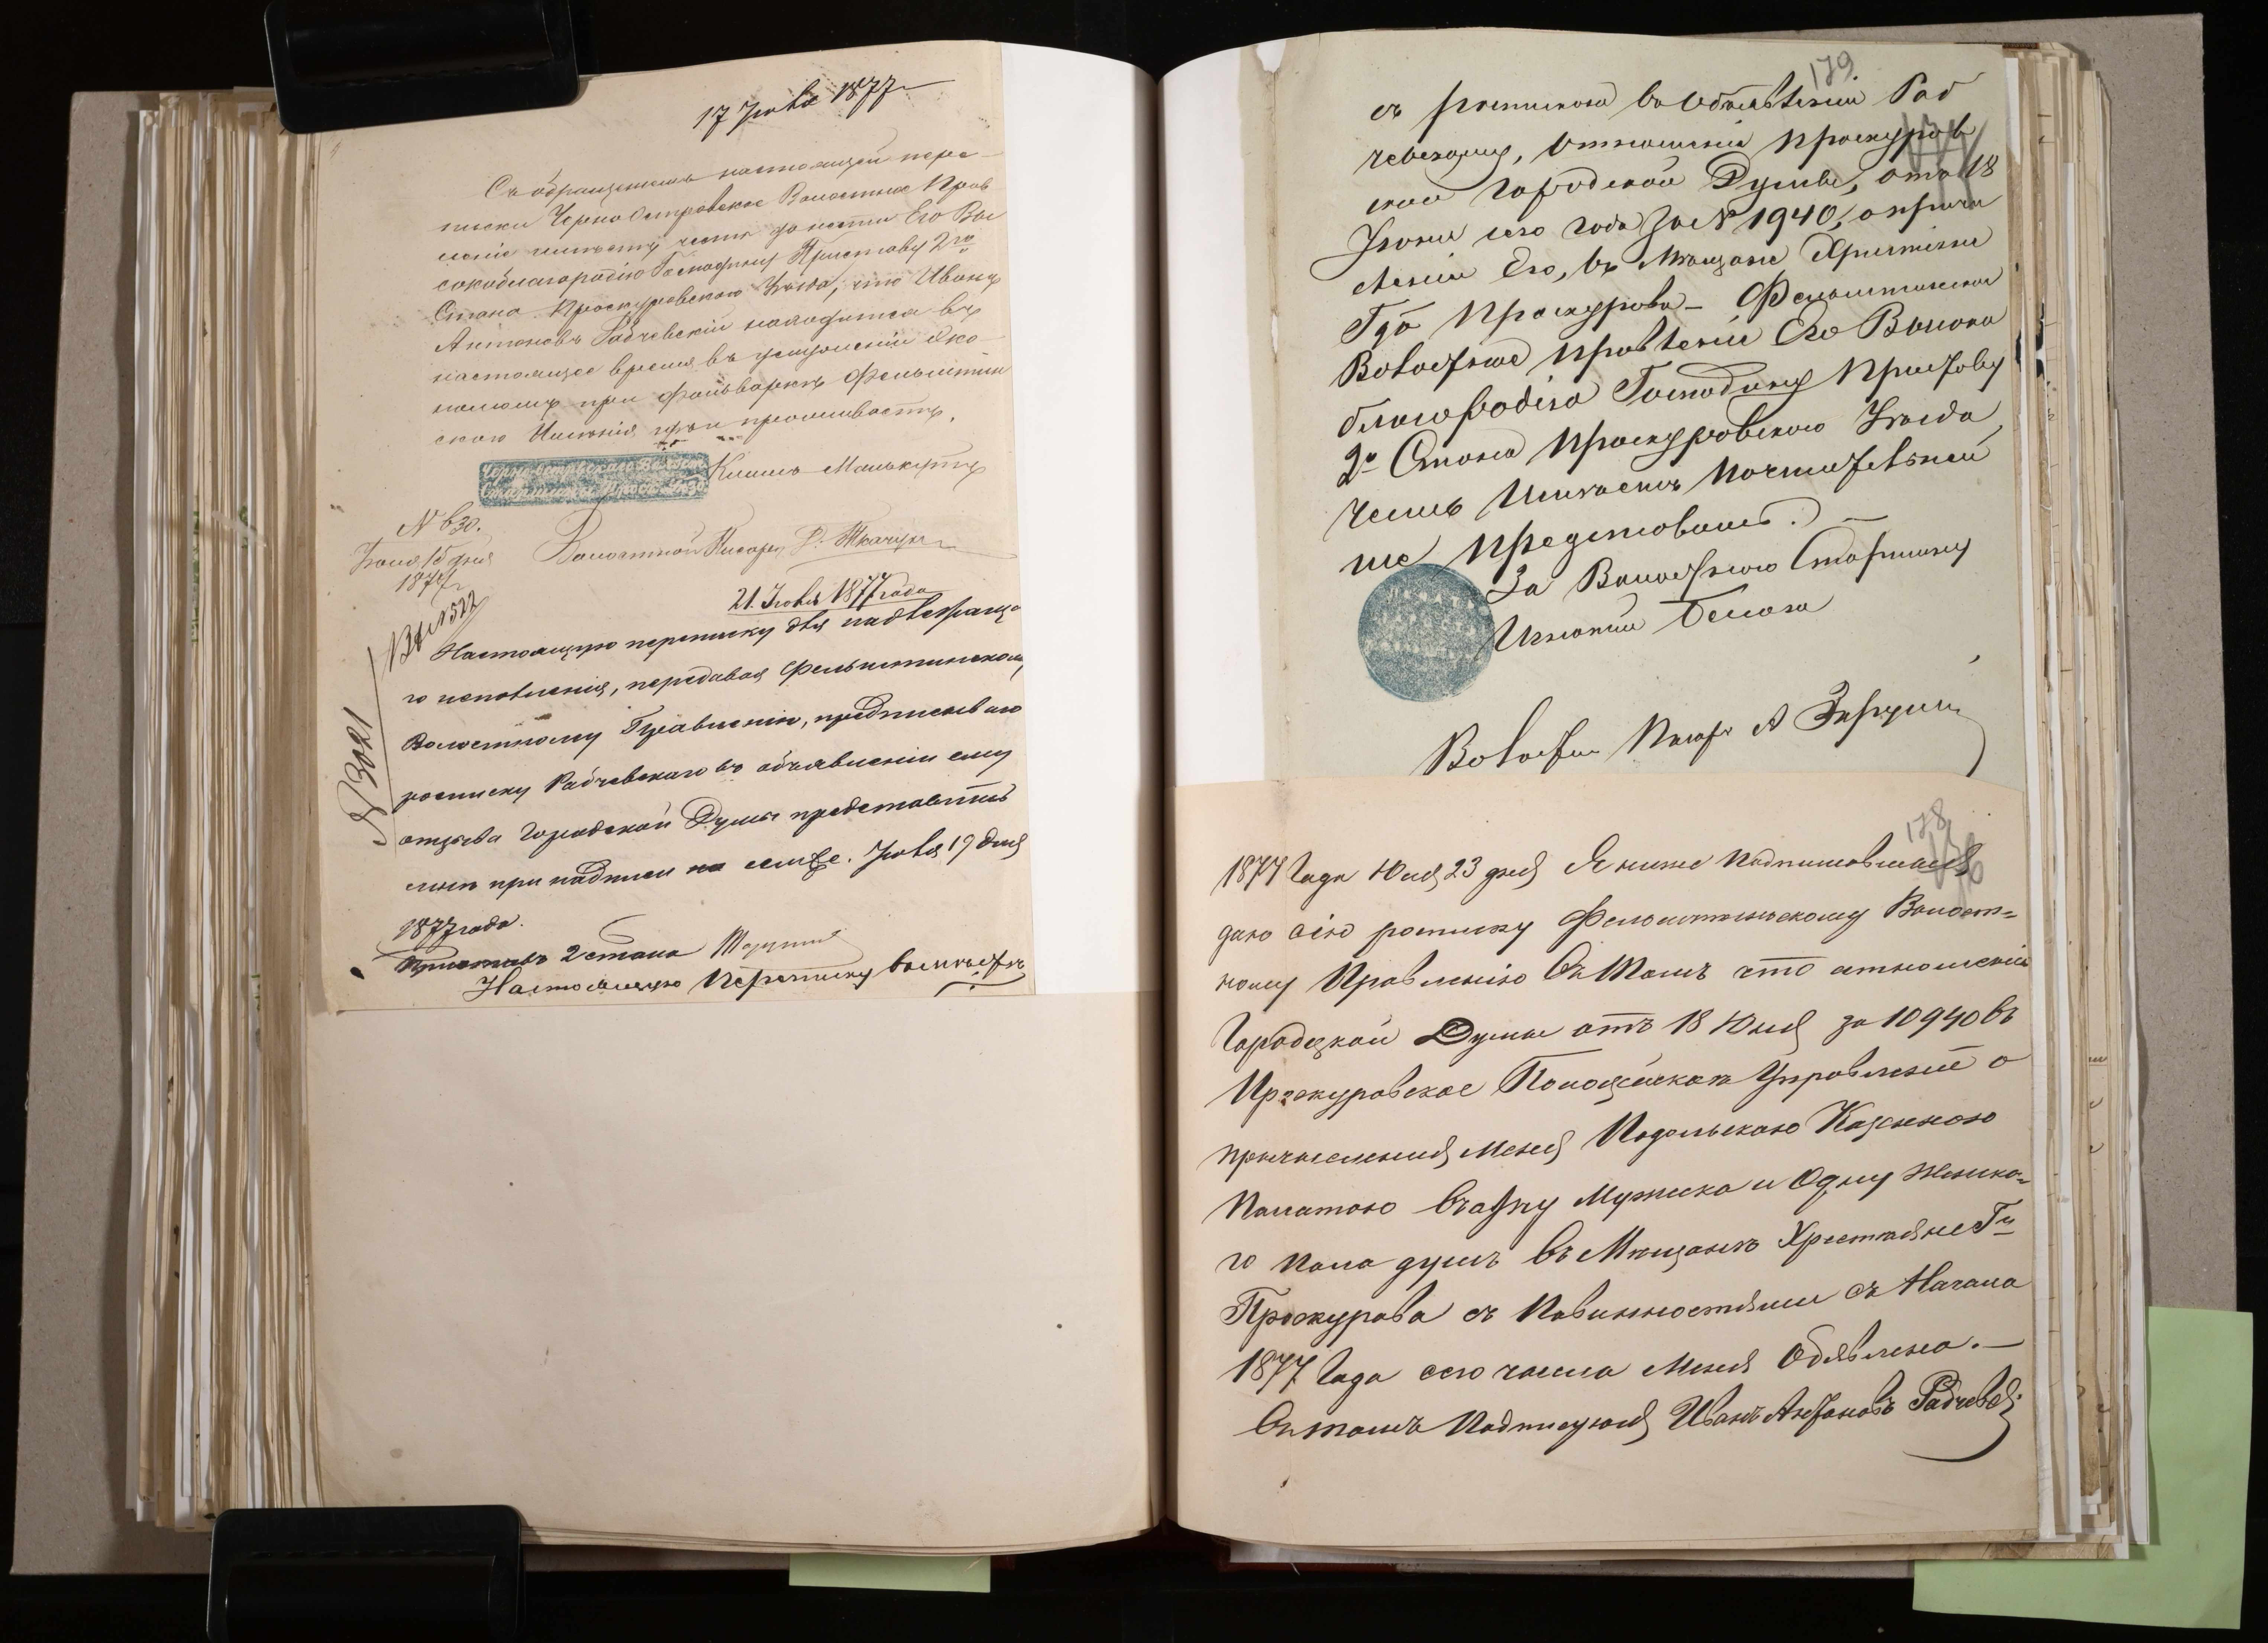 17 Юля 1877
Съ обращеніемъ настоящей пере-
писки Чорно Островское Волостное Прав
леніе имѣетъ честь донести Его Вы
сокоблагородію Господину Приставу 2го
Стана Проскуровского Уѣзда, что Иванъ
Антоновъ Радчевскій находится въ
настоящее время въ услуженіи Эко
номомъ при фольваркѣ Фельштин
ского Имѣнія гдѣ и проживаетъ.
Черно-островскаго Волост.
Старшины Проск. Уѣзд.
N 630.
Юля 15 дня
1877
Волостной Писарь Ткачукъ
21 Юля 1877 года
Вх N 522
N 3021
Настоящую переписку для надлежаща
го исполненія, передавая Фельштинскому
Волостному Правленію, предписываю
росписку Радчевскаго въ объявленіи ему
отзыва Городской Думы представить
мнѣ при надписи на семже. Юля 19 дня
1877 года.
Приставъ 2 стана
Настоящую Переписку вместѣ
179
съ роспискою въ объявленіи Рад
чевскому, отношенія Проскуров
ской городской Думы, отъ 18
Іюня сего года за N 1940, о причи
сленіи Его, въ Мѣщане Христіане
Гда Проскурова - Фельштинское
Волостное Правленіе Его Высоко
благородію Господину Приставу
2го Стана Проскуровского Уѣзда,
честь Имѣетъ Почтительней
ше Представить.
За Волостного Старшину
Волостн Писарь А
178
1877 Года Юля 23 дня Я ниже Подписавшийся
даю сію росписку Фельштинскому Волост-
ному Правленію въ Томъ что отношеніи
Городской Думы отъ 18 Юня за 10940 въ
Проскуровское Полоцейское Управленіе о
причисления Меня Подольскою Казенною
Палатою Одну Мужска и Одну Женска-
го Пола душъ въ Мещанъ Христіяне Гд
Проскурова съ Повинностями съ Начала
1877 Года сего числа Меня Обявлено.-
Въ томъ Подписуюся Иванъ Антоновъ Радчевскій